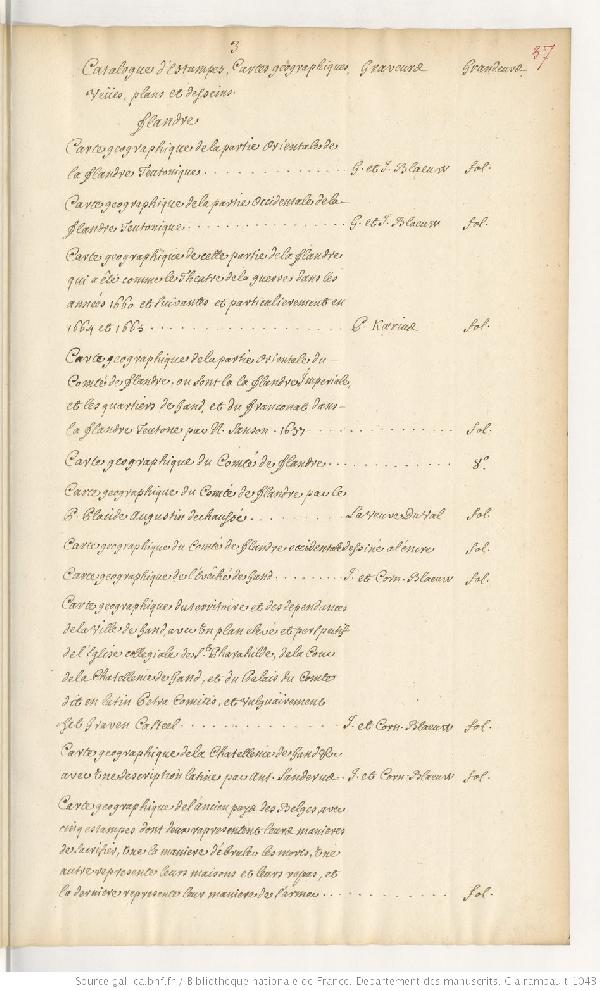 3
37
Catalogue d'estampes, Cartes géographiques, Graveurs Grandeurs
Veües, plans et desseins.
Flandre
Carte geographique de la partie Orientale de
la Flandre Teutonique . . . . . . . . . . . . . . . G. et J. Blaeuw fol.
Carte geographique de la partie Occidentale de la
Flandre Teutonique . . . . . . . . . . . . . . . . G. et J. Blaeuw fol.
Carte geographique de cette partie de la Flandre
qui a été comme le Theatre de la guerre dans les
années 1660 et suivantes et particulierement en
1664 et 1665 . . . . . . . . . . . . . . . . . . P. Kærius fol.
Carte geographique de la partie Orientale du
Comté de Flandre, ou sont la Flandre Imperiale,
et les quartiers de Gand, et du Franconat dans
la Flandre Teutone par N. Sanson . 1657 . . . . . . . . . . fol.
Carte geographique du Comté de Flandre . . . . . . . . . . . . . 8°.
Carte geographique du Comté de Flandre par le
P. Placide Augustin dechaussé . . . . . . . . . . La veuve Du Val fol.
Carte geographique du Comté de Flandre occidentale dessiné a l'encre fol.
Carte geographique de l'Evêché de Gand . . . . . . . J. et Corn. Blaeuw fol.
Carte geographique du territoire et des dependances
de la ville de Gand, avec un plan elevé et perspectif
de l'Eglise collegiale de Ste Pharahilde, de la Cour
de la Chatellenie de Gand, et du Palais du Comte
dit en latin Petra Comitis, et vulgairement
Het Graven Casteel . . . . . . . . . . . . . . . J. et Corn. Blaeuw fol.
Carte geographique de la Chatellenie de Gand &c
avec une description latine par Ant. Sanderus . J. et Corn. Blaeuw fol.
Carte geographique de l'ancien pays des Belges, avec
cinq estampes dont deux representent leurs manieres
de sacrifier, une la maniere de bruler les morts, une
autre represente leurs maisons et leurs repas, et
la derniere represente leur maniere de s'armer . . . . . . . . . . . . fol.
Source gallica.bnf.fr / Bibliothèque nationale de France. Département des manuscrits. Clairambault 1048